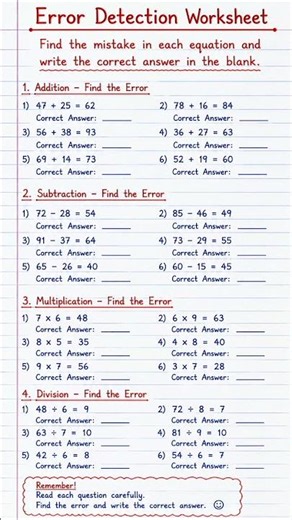 Error Detection Worksheet
Find the mistake in each equation and
write the correct answer in the blank.
1. Addition – Find the Error
1) 47 + 25 = 62
Correct Answer: ______
2) 78 + 16 = 84
Correct Answer: ______
3) 56 + 38 = 93
Correct Answer: ______
4) 36 + 27 = 63
Correct Answer: ______
5) 69 + 14 = 73
Correct Answer: ______
6) 52 + 19 = 60
Correct Answer: ______
2. Subtraction – Find the Error
1) 72 – 28 = 54
Correct Answer: ______
2) 85 – 46 = 49
Correct Answer: ______
3) 91 – 37 = 64
Correct Answer: ______
4) 73 – 29 = 55
Correct Answer: ______
5) 65 – 26 = 40
Correct Answer: ______
6) 60 – 15 = 45
Correct Answer: ______
3. Multiplication – Find the Error
1) 7 x 6 = 48
Correct Answer: ______
2) 6 x 9 = 63
Correct Answer: ______
3) 8 x 5 = 35
Correct Answer: ______
4) 4 x 8 = 40
Correct Answer: ______
5) 9 x 7 = 56
Correct Answer: ______
6) 3 x 7 = 28
Correct Answer: ______
4. Division – Find the Error
1) 48 ÷ 6 = 9
Correct Answer: ______
2) 72 ÷ 8 = 7
Correct Answer: ______
3) 63 ÷ 7 = 10
Correct Answer: ______
4) 81 ÷ 9 = 10
Correct Answer: ______
5) 42 ÷ 6 = 8
Correct Answer: ______
6) 54 ÷ 6 = 7
Correct Answer: ______
Remember!
Read each question carefully.
Find the error and write the correct answer. ☺